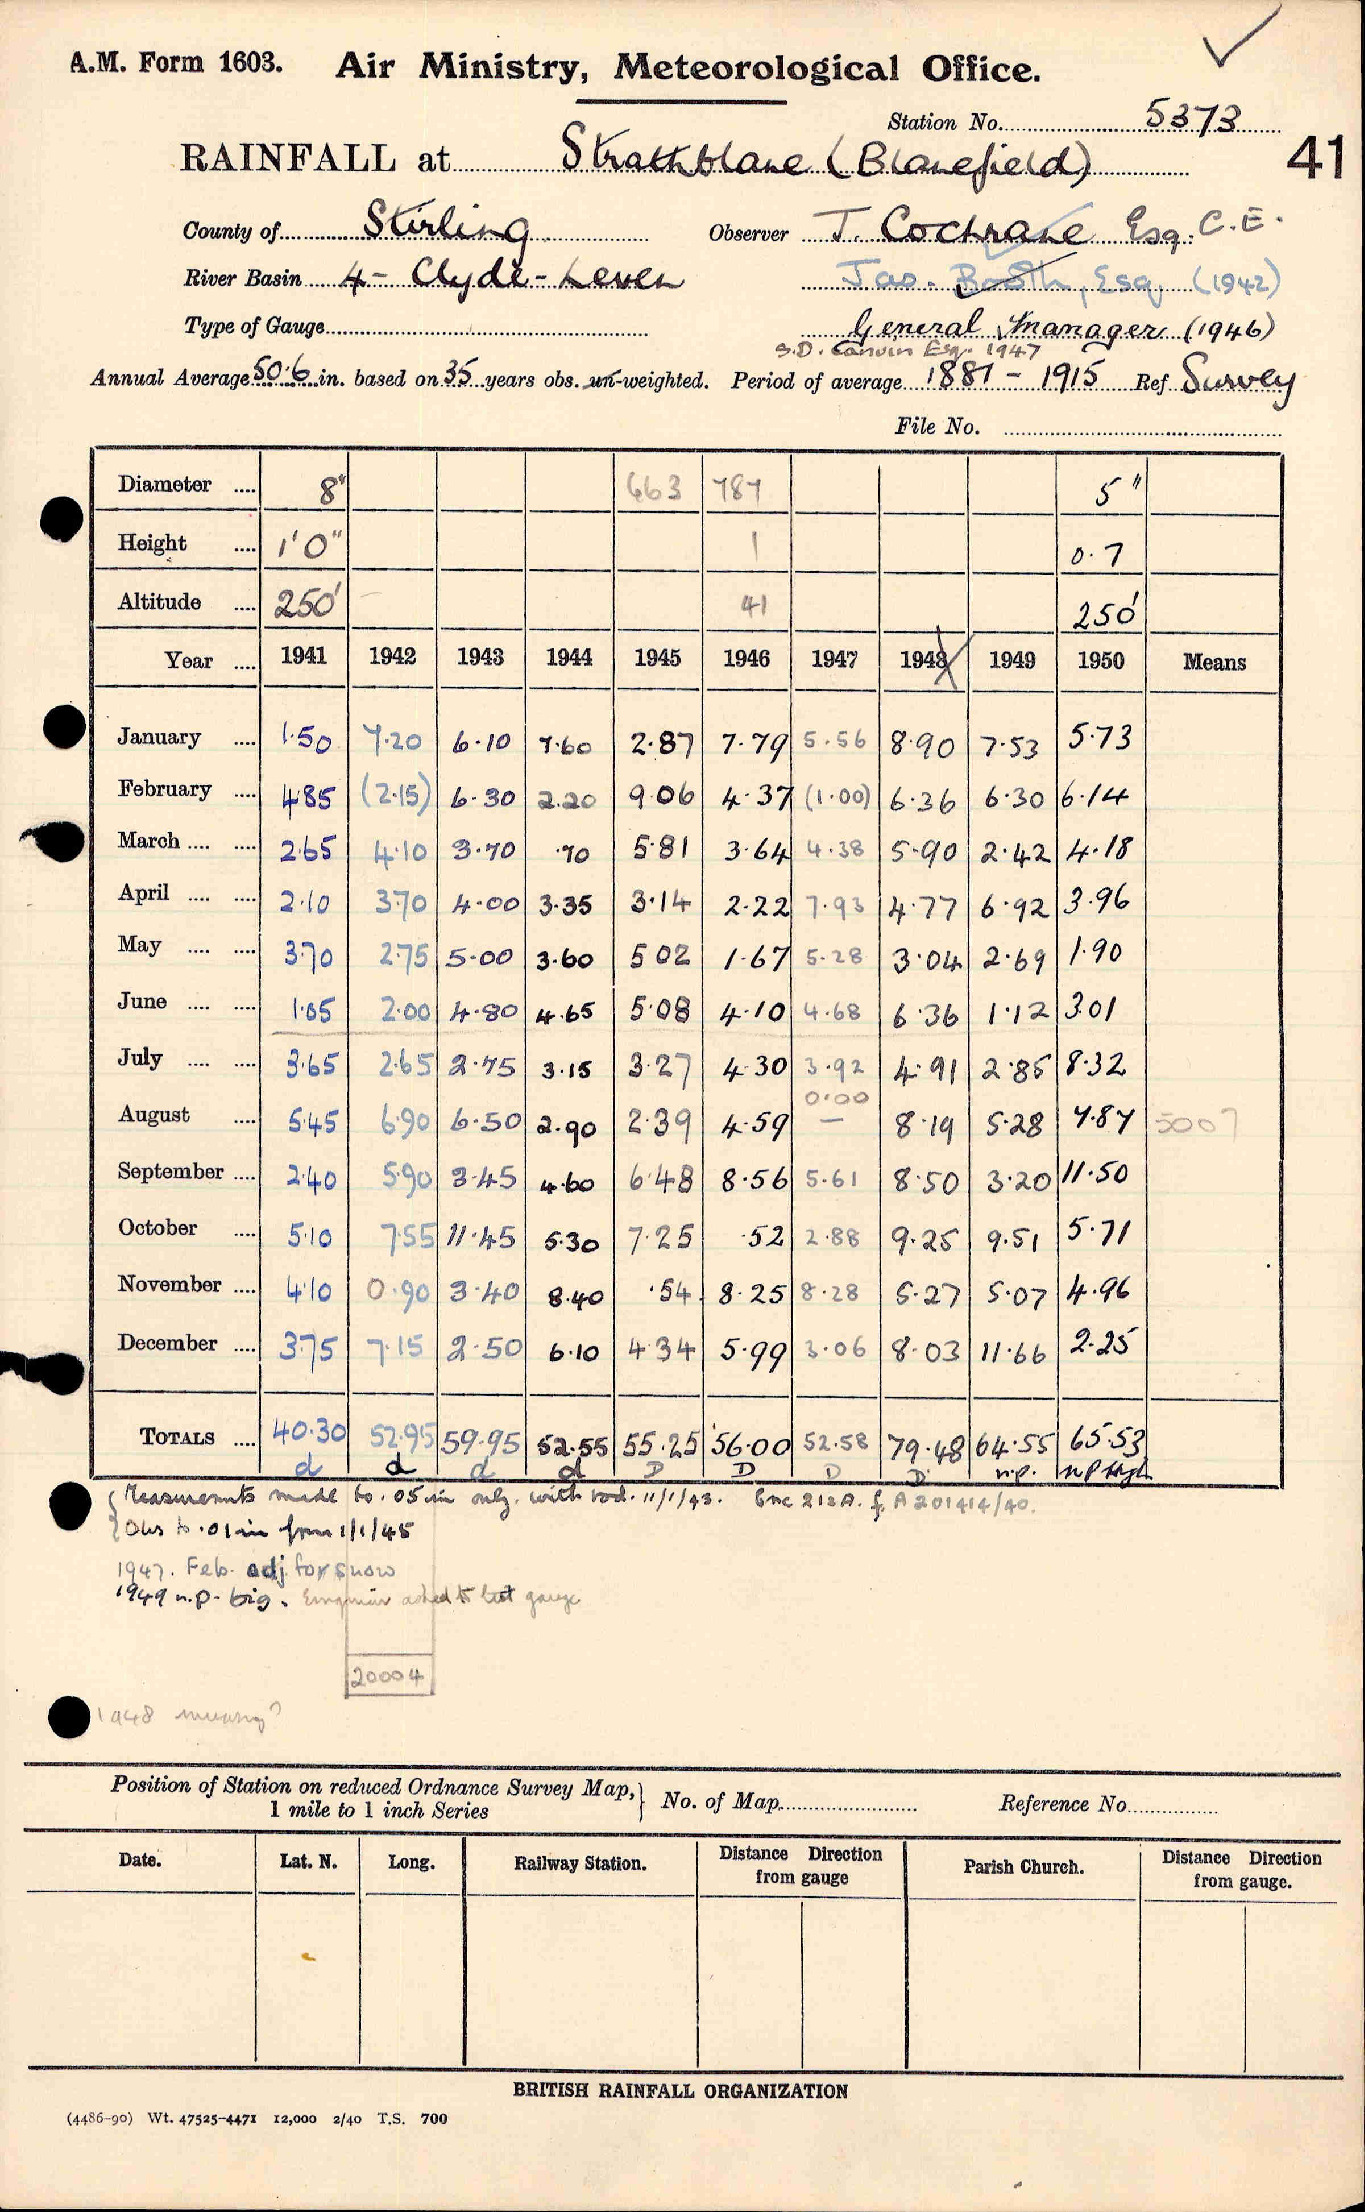 A.M. Form 1603. Air Ministry, Meteorological Office.
Station No. 5373
RAINFALL at Strathblane (Blanefield)
41
County of Stirling Observer J. Cochrane Esq. C.E.
River Basin 4 - Clyde - Leven Jas. Booth, Esq. (1942)
Type of Gauge General Manager (1946)
S.D. Esq. 1947
Annual Average 50.6 in. based on 35 years obs. un-weighted. Period of average 1881 - 1915 Ref Survey
File No.
Diameter 8" 663 787 5"
Height 1'0" 1 0.7
Altitude 250' 41 250'
Year 1941 1942 1943 1944 1945 1946 1947 1948 1949 1950 Means
January 1.50 7.20 6.10 7.60 2.87 7.79 5.56 8.90 7.53 5.73
February 4.85 (2.15) 6.30 2.20 9.06 4.37 (1.00) 6.36 6.30 6.14
March 2.65 4.10 3.70 .70 5.81 3.64 4.38 5.90 2.42 4.18
April 2.10 3.70 4.00 3.35 3.14 2.22 7.93 4.77 6.92 3.96
May 3.70 2.75 5.00 3.60 5 02 1.67 5.28 3.04 2.69 1.90
June 1.05 2.00 4.80 4.65 5.08 4.10 4.68 6.36 1.12 3.01
July 3.65 2.65 2.75 3.15 3.27 4.30 3.92 4.91 2.85 8.32
0.00
August 5.45 6.90 6.50 2.90 2.39 4.59 — 8.19 5.28 7.87 5007
September 2.40 5.90 3.45 4.60 6.48 8.56 5.61 8.50 3.20 11.50
October 5.10 7.55 11.45 5.30 7.25 .52 2.88 9.25 9.51 5.71
November 4.10 0.90 3.40 8.40 .54 8.25 8.28 5.27 5.07 4.96
December 3.75 7.15 2.50 6.10 4.34 5.99 3.06 8.03 11.66 2.25
TOTALS 40.30 52.95 59.95 52.55 55.25 56.00 52.58 79.48 64.55 65.53
d d d d D D D D n.p. n p high
Measurements made to .05 in only. with rod. 11/1/43. Enc 212A. f. A201414/40.
Obs to .01 in from 1/1/45
1947. Feb. adj for snow
1949 n.p. big. asked to test gauge
20004
1948 missing?
Position of Station on reduced Ordnance Survey Map, No. of Map Reference No.
1 mile to 1 inch Series
Date. Lat. N. Long. Railway Station. Distance Direction from gauge Parish Church. Distance Direction from gauge.
BRITISH RAINFALL ORGANIZATION
(4486-90) Wt. 47525-4471 12,000 2/40 T.S. 700